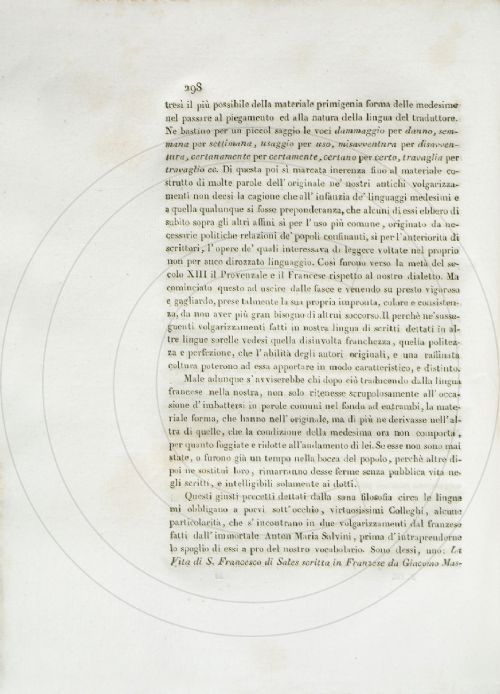 298
tresì il più possibile della materiale primigenia forma delle medesime
nel passare al piegamento ed alla natura della lingua del traduttore.
Ne bastino per un piccol saggio le voci dammaggio per danno, sem-
mana per settimana, usaggio per uso, misavventura per disavven-
tura, certanamente per certamente, certano per certo, travaglia per
travaglio ec. Di questa poi sì marcata inerenza fino al materiale co-
strutto di molte parole dell'originale ne' nostri antichi volgarizza-
menti non deesi la cagione che all'infanzia de' linguaggi medesimi e
a quella qualunque si fosse preponderanza, che alcuni di essi ebbero di
subito sopra gli altri affini sì per l'uso più comune, originato da ne-
cessarie politiche relazioni de' popoli confinanti, sì per l'anteriorità di
scrittori, l'opere de' quali interessava di leggere voltate nel proprio
non per anco dirozzato linguaggio. Così furono verso la metà del se-
colo XIII il Provenzale e il Francese rispetto al nostro dialetto. Ma
cominciato questo ad uscire dalle fasce e venendo su presto vigoroso
e gagliardo, prese talmente la sua propria impronta, colore e consisten-
za, da non aver più gran bisogno di altrui soccorso. Il perchè ne' susse-
guenti volgarizzamenti fatti in nostra lingua di scritti dettati in al-
tre lingue sorelle vedesi quella disinvolta franchezza, quella politez-
za e perfezione, che l'abilità degli autori originali, e una raffinata
coltura poterono ad essa apportare in modo caratteristico, e distinto.
Male adunque s'avviserebbe chi dopo ciò traducendo dalla lingua
francese nella nostra, non solo ritenesse scrupolosamente all'occa-
sione d'imbattersi in parole comuni nel fondo ad entrambi, la mate-
riale forma, che hanno nell'originale, ma di più ne derivasse nell'al-
tra di quelle, che la condizione della medesima ora non comporta,
per quanto foggiate e ridotte all'andamento di lei. Se esse non sono mai
state, o furono già un tempo nella bocca del popolo, perchè altre di-
poi ne sostituì loro, rimarranno desse ferme senza pubblica vita ne-
gli scritti, e intelligibili solamente ai dotti.
Questi giusti precetti dettati dalla sana filosofia circa le lingue
mi obbligano a porvi sott'occhio, virtuosissimi Colleghi, alcune
particolarità, che s'incontrano in due volgarizzamenti dal franzese
fatti dall'immortale Anton Maria Salvini, prima d'intraprenderne
lo spoglio di essi a pro del nostro vocabolario. Sono dessi, uno: La
Vita di S. Francesco di Sales scritta in Franzese da Giacomo Mar-